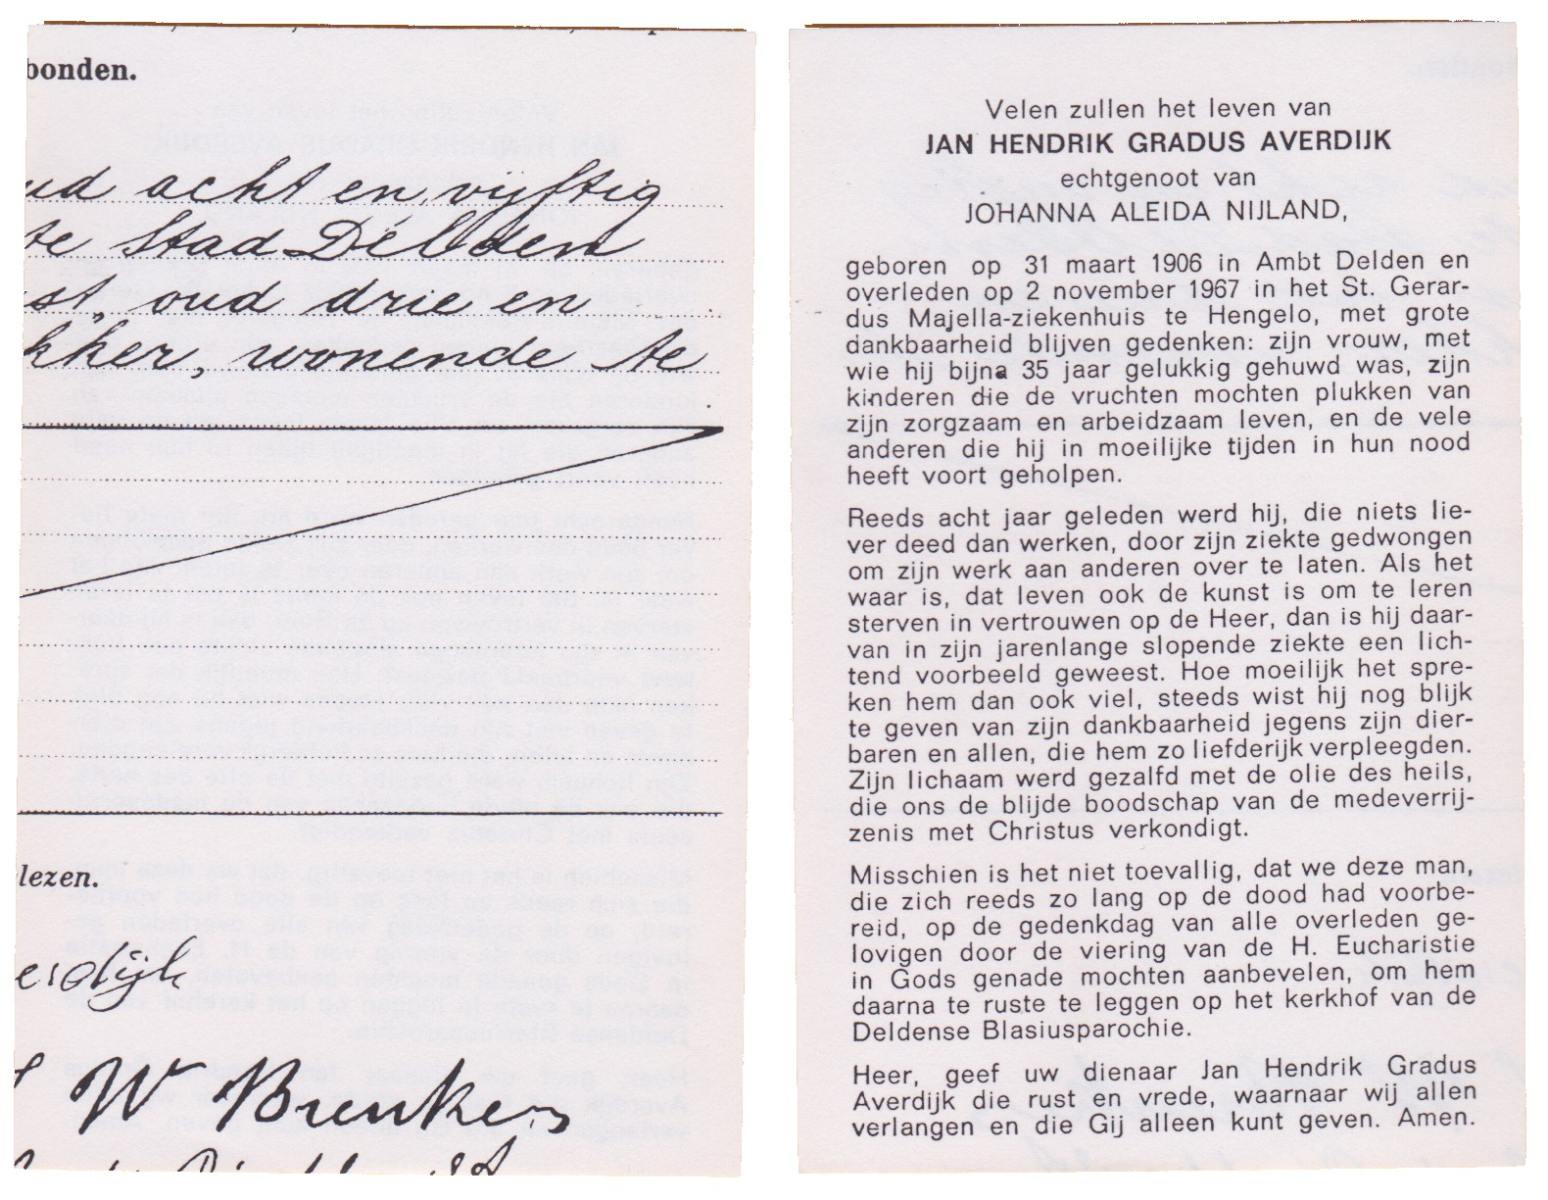 bonden.
acht en vijftig
te Stad Delden
st, oud drie en
kker, wonende te
lezen.
erdijk
W Brenker
Velen zullen het leven van
JAN HENDRIK GRADUS AVERDIJK
echtgenoot van
JOHANNA ALEIDA NIJLAND,
geboren op 31 maart 1906 in Ambt Delden en
overleden op 2 november 1967 in het St. Gerar-
dus Majella-ziekenhuis te Hengelo, met grote
dankbaarheid blijven gedenken: zijn vrouw, met
wie hij bijna 35 jaar gelukkig gehuwd was, zijn
kinderen die de vruchten mochten plukken van
zijn zorgzaam en arbeidzaam leven, en de vele
anderen die hij in moeilijke tijden in hun nood
heeft voort geholpen.
Reeds acht jaar geleden werd hij, die niets lie-
ver deed dan werken, door zijn ziekte gedwongen
om zijn werk aan anderen over te laten. Als het
waar is, dat leven ook de kunst is om te leren
sterven in vertrouwen op de Heer, dan is hij daar-
van in zijn jarenlange slopende ziekte een lich-
tend voorbeeld geweest. Hoe moeilijk het spre-
ken hem dan ook viel, steeds wist hij nog blijk
te geven van zijn dankbaarheid jegens zijn dier-
baren en allen, die hem zo liefderijk verpleegden.
Zijn lichaam werd gezalfd met de olie des heils,
die ons de blijde boodschap van de medeverrij-
zenis met Christus verkondigt.
Misschien is het niet toevallig, dat we deze man,
die zich reeds zo lang op de dood had voorbe-
reid, op de gedenkdag van alle overleden ge-
lovigen door de viering van de H. Eucharistie
in Gods genade mochten aanbevelen, om hem
daarna te ruste te leggen op het kerkhof van de
Deldense Blasiusparochie.
Heer, geef uw dienaar Jan Hendrik Gradus
Averdijk die rust en vrede, waarnaar wij allen
verlangen en die Gij alleen kunt geven. Amen.